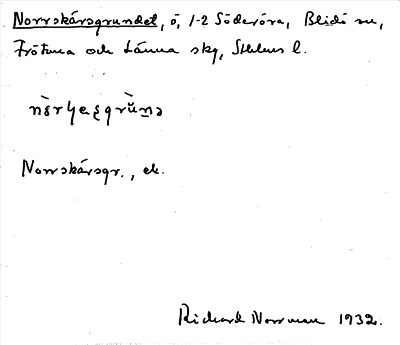 Norrskärsgrundet, ö, 1-2 Söderöra, Blidö sn,
Frötuna och Länna skg, Sthlms l.
Norrskärsgr., ek.
Richard Norrman 1932.